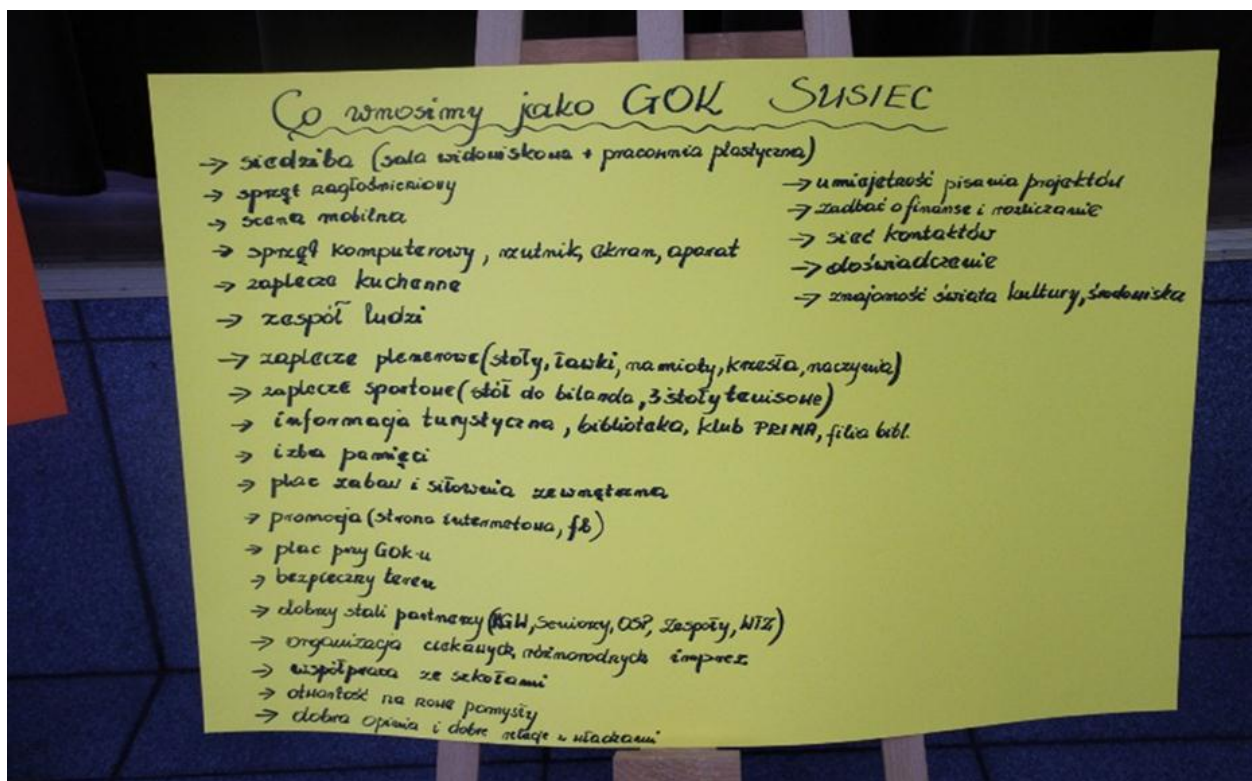 Co wnosimy jako GOK SUSIEC
→ siedziba (sala widowiskowa + pracownia plastyczna)
→ sprzęt nagłośnieniowy
→ scena mobilna
→ sprzęt komputerowy, rzutnik, ekran, aparat
→ zaplecze kuchenne
→ zespół ludzi
→ zaplecze plenerowe (stoły, ławki, namioty, krzesła, naczynia)
→ zaplecze sportowe (stół do bilarda, 3 stoły tenisowe)
→ informacja turystyczna, biblioteka, klub PRIMA, filia bibl.
→ izba pamięci
→ plac zabaw i siłownia zewnętrzna
→ promocja (strona internetowa, fb)
→ plac przy GOK-u
→ bezpieczny teren
→ dobrzy stali partnerzy (KGW, Seniorzy, OSP, Zespoły, WTZ)
→ organizacja ciekawych, różnorodnych imprez
→ współpraca ze szkołami
→ otwartość na nowe pomysły
→ dobra opinia i dobre relacje z władzami
→ umiejętność pisania projektów
→ zadbać o finanse i rozliczanie
→ sieć kontaktów
→ doświadczenie
→ znajomość świata kultury, środowiska